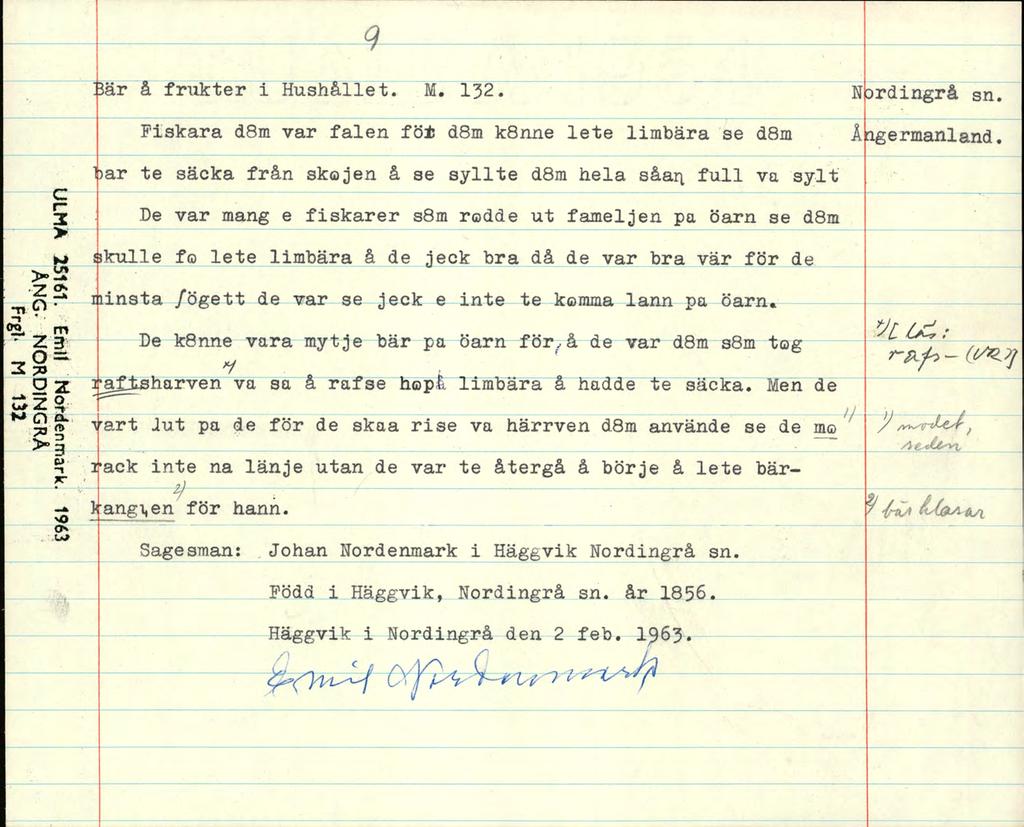 9
Bär å frukter i Hushållet. M. 132.
Nordingrå sn.
Ångermanland.
Fiskara d8m var falen för d8m k8nne lete limbära se d8m
bar te säcka från skɷjen å se syllte d8m hela såaɳ full vɑ sylt
De var mang e fiskarer s8m rɷdde ut fameljen pɑ öarn se d8m
skulle fɷ lete limbära å de jeck bra då de var bra vär för de
minsta ʃögett de var se jeck e inte te kɷmma lann pɑ öarn.
De k8nne vɑra mytje bär pɑ öarn för, å de var d8m s8m tɷg
raftshɑrven x) vɑ sɑ å rɑfse hɷpa limbära å hɑdde te säcka. Men de
vart lut pɑ de för de skɑa rise vɑ härrven d8m använde se de mɷ 1)
rack inte na länje utan de var te återgå å börje å lete bär-
kangɩen 2) för hann.
x) [läs:
rafs- (VR?)]
1) modet,
seden
2) bärklasar
Sagesman: Johan Nordenmark i Häggvik Nordingrå sn.
Född i Häggvik, Nordingrå sn. år 1856.
Häggvik i Nordingrå den 2 feb. 1963.
Emil Nordenmark
ULMA 25161. Emil Nordenmark. 1963
ÅNG. NORDINGRÅ
Frgl. M 132